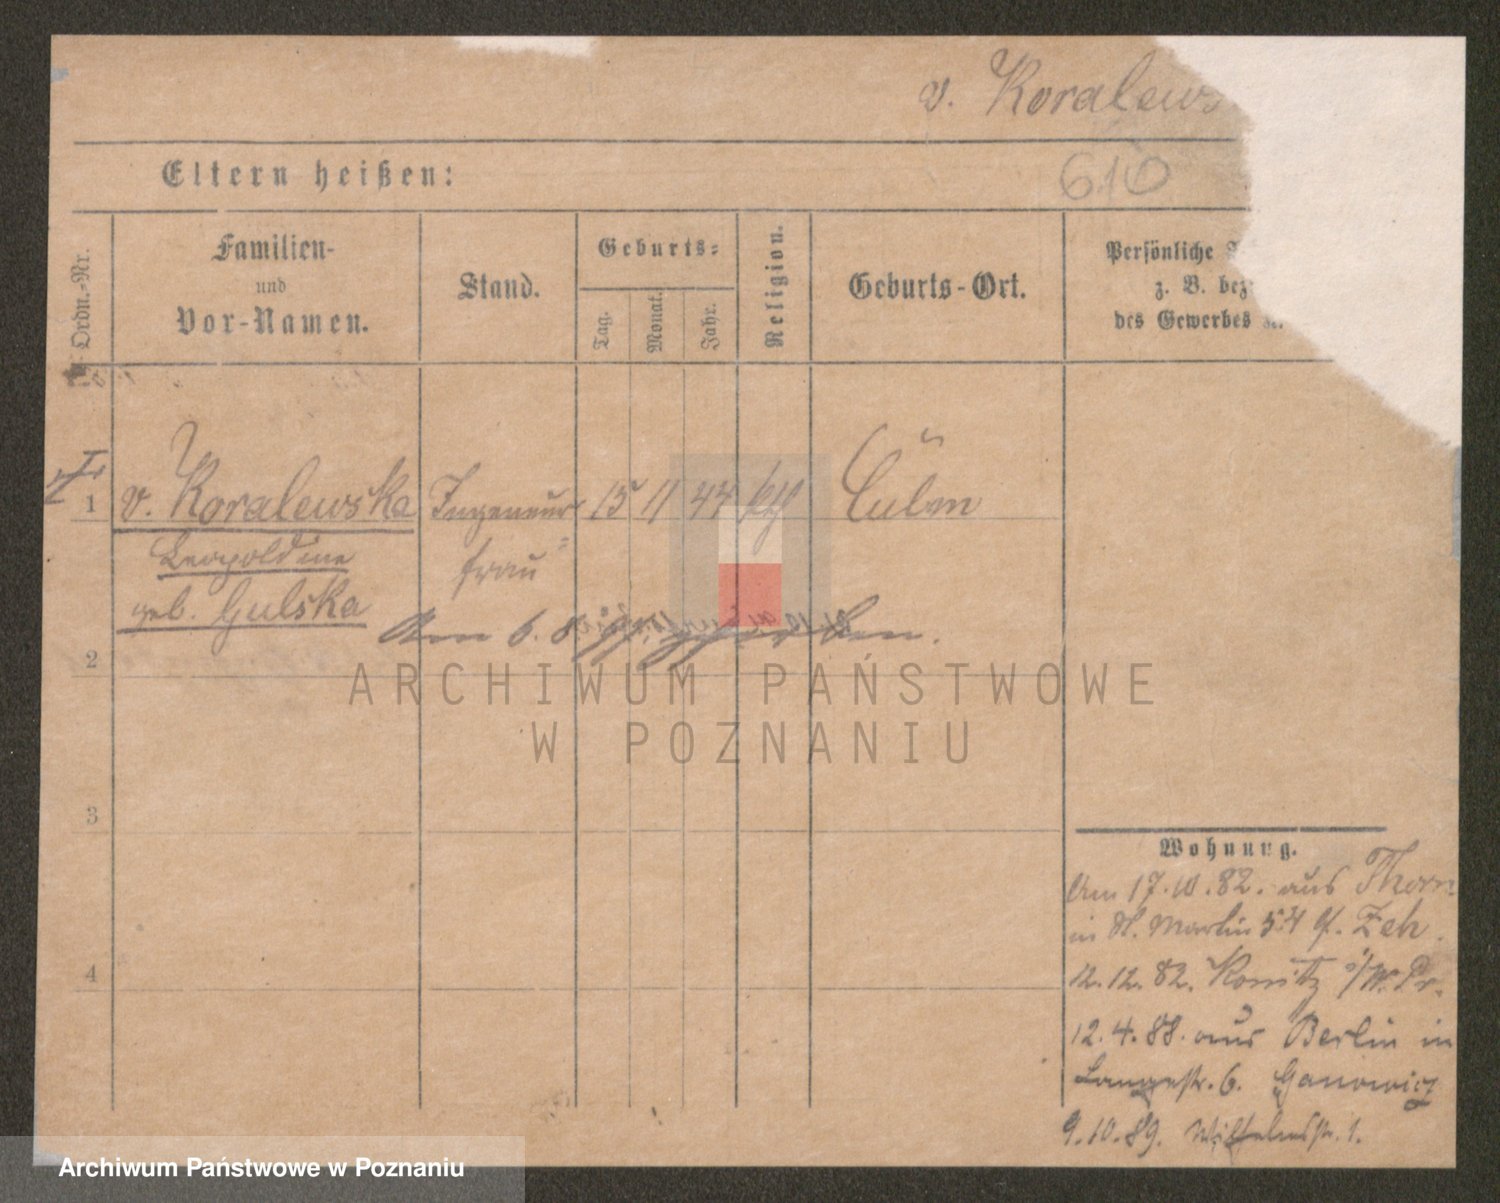 v. Koralews
610
Eltern heißen:
Ordn.-Nr.
Familien-
und
Vor-Namen.
Stand.
Geburts-
Tag.
Monat.
Jahr.
Religion.
Geburts-Ort.
Persönliche
z. B. bez
des Gewerbes
1
v. Koralewska
Leopoldine
geb. Gulska
Ingeneur
frau
15 11 44 kth
Culm
Am 6. 8. gestorben.
2
3
4
ARCHIWUM PAŃSTWOWE
W POZNANIU
Wohnung.
Am 17.10.82. aus Thorn
in St. Martin 54 Zeh.
12.12.82. Konitz i/W.Pr.
12.4.88. aus Berlin in
Langestr. 6. Ganowicz
9.10.89. Wilhelmstr. 1.
Archiwum Państwowe w Poznaniu